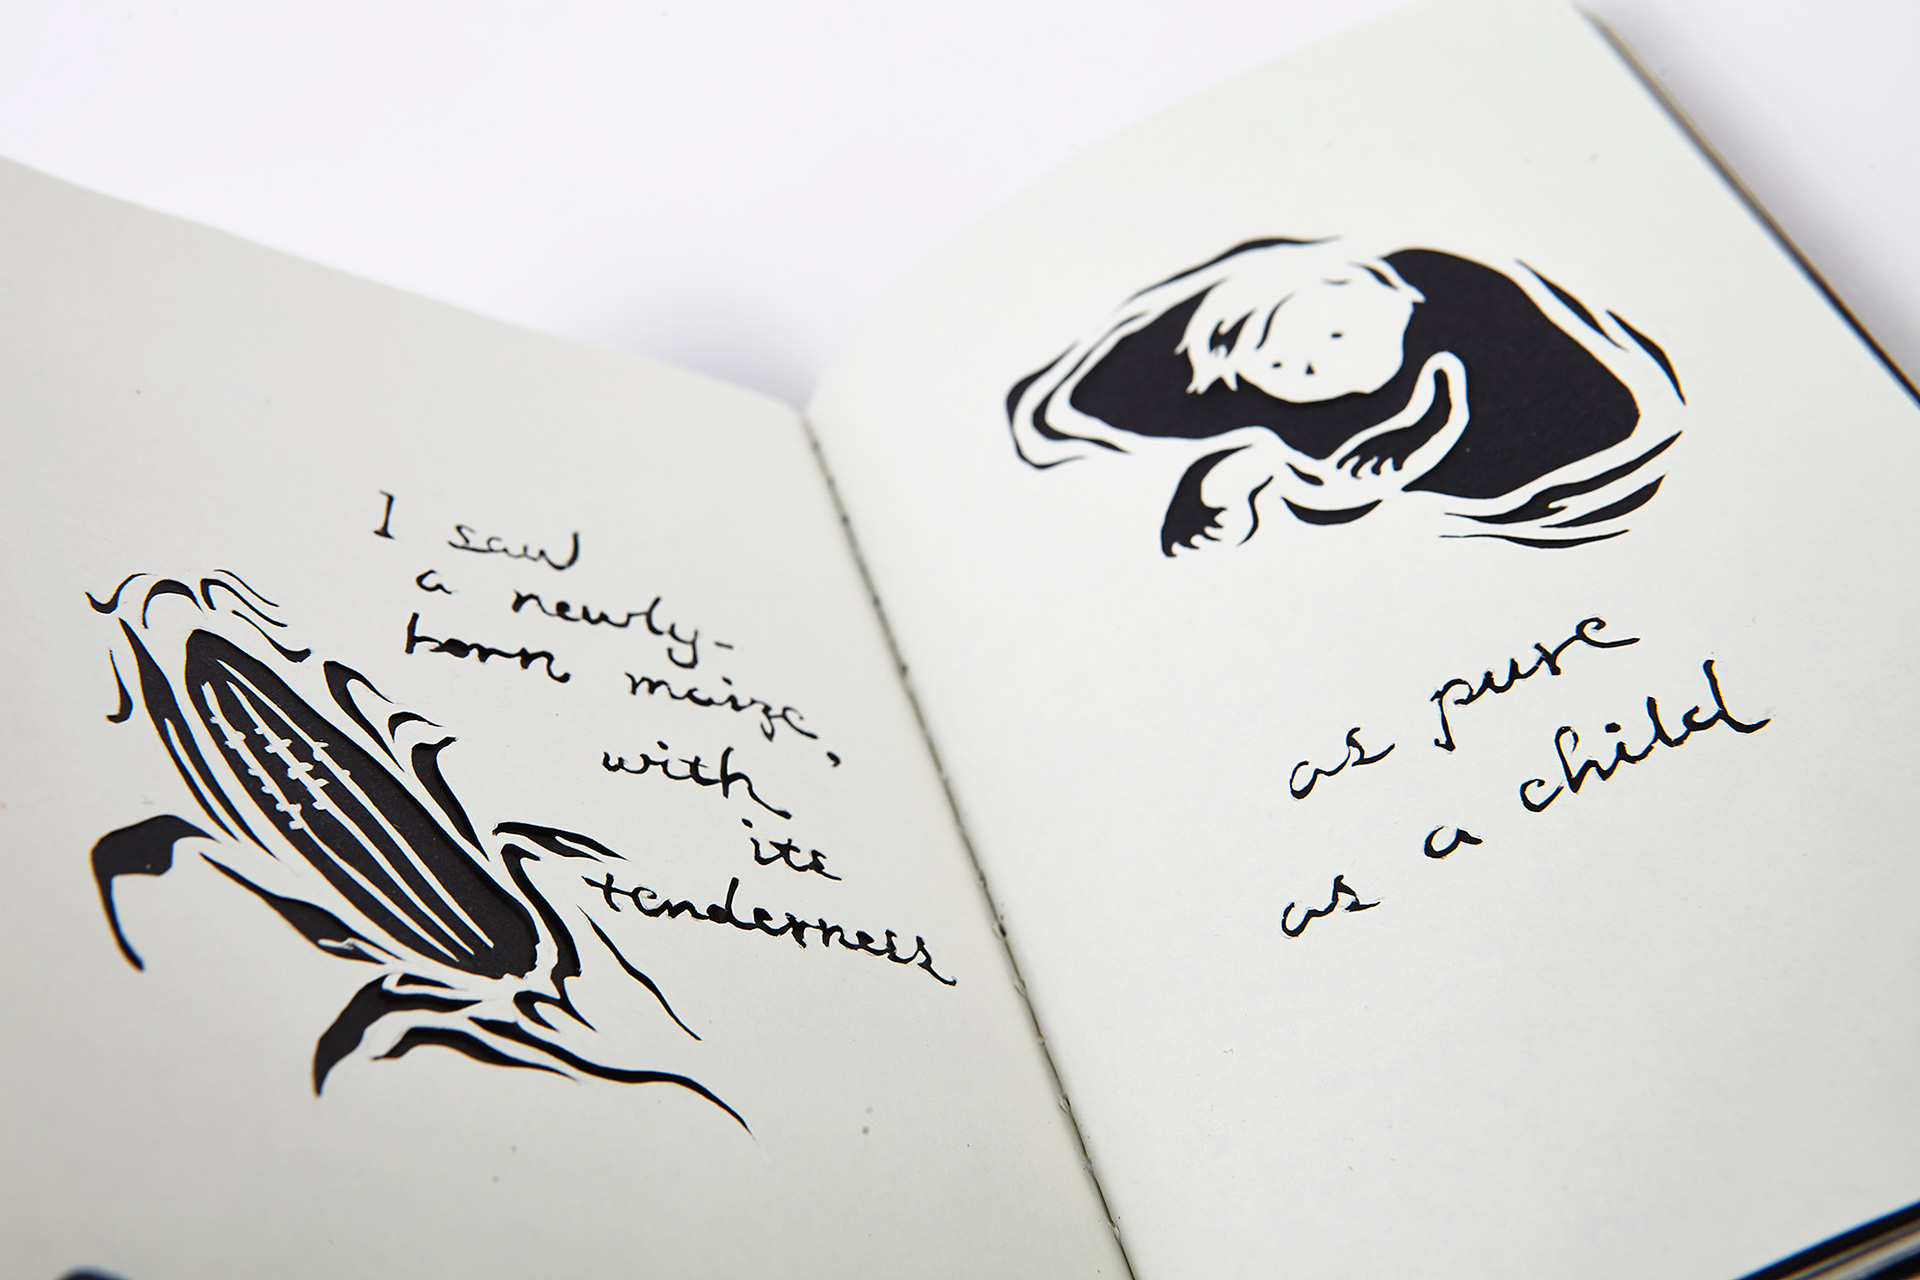 I saw
a newly-
born maize,
with
its
tenderness
as pure
as a child